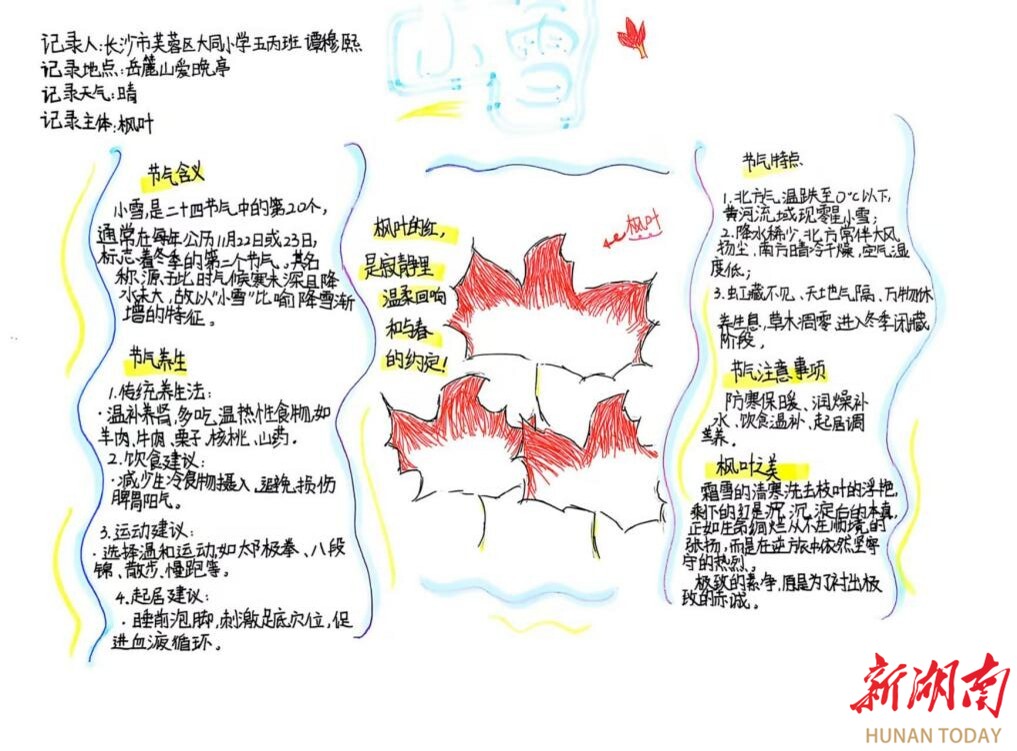 小雪
记录人:长沙市芙蓉区大同小学五丙班 谭穆熙
记录地点:岳麓山爱晚亭
记录天气:晴
记录主体:枫叶
节气含义
小雪,是二十四节气中的第20个,
通常在每年公历11月22日或23日,
标志着冬季的第二个节气。其名
称源于此时气候寒未深且降
水未大,故以"小雪"比喻降雪渐
增的特征。
节气养生
1.传统养生法:
·温补养肾,多吃温热性食物,如
羊肉、牛肉、栗子、核桃、山药。
2.饮食建议:
·减少生冷食物摄入,避免损伤
脾胃阳气。
3.运动建议:
·选择温和运动,如太极拳、八段
锦、散步、慢跑等。
4.起居建议:
·睡前泡脚,刺激足底穴位,促
进血液循环。
枫叶的红,
是寂静里
温柔回响
和与春
的约定!
枫叶
节气特点
1.北方气温跌至0℃以下,
黄河流域现零星小雪;
2.降水稀少,北方常伴大风
扬尘,南方晴冷干燥,空气湿
度低;
3.虹藏不见、天地气隔、万物休
养生息,草木凋零进入冬季闭藏
阶段。
节气注意事项
防寒保暖、润燥补
水、饮食温补、起居调
养。
枫叶之美
霜雪的清寒洗去枝叶的浮艳,
剩下的红是沉沉淀后的本真,
正如生命绚烂从不在顺境的
张扬,而是在逆旅中依然坚守
守的热烈。
极致的素净,原是为了衬出极
致的赤诚。
新湖南
HUNAN TODAY